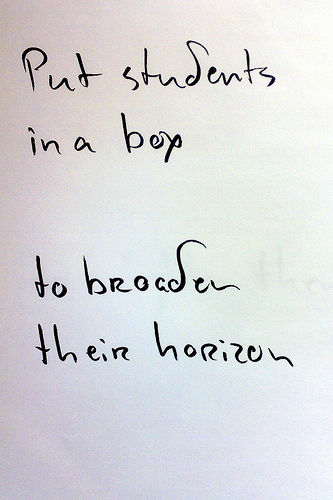 Put students
in a box
to broaden
their horizon